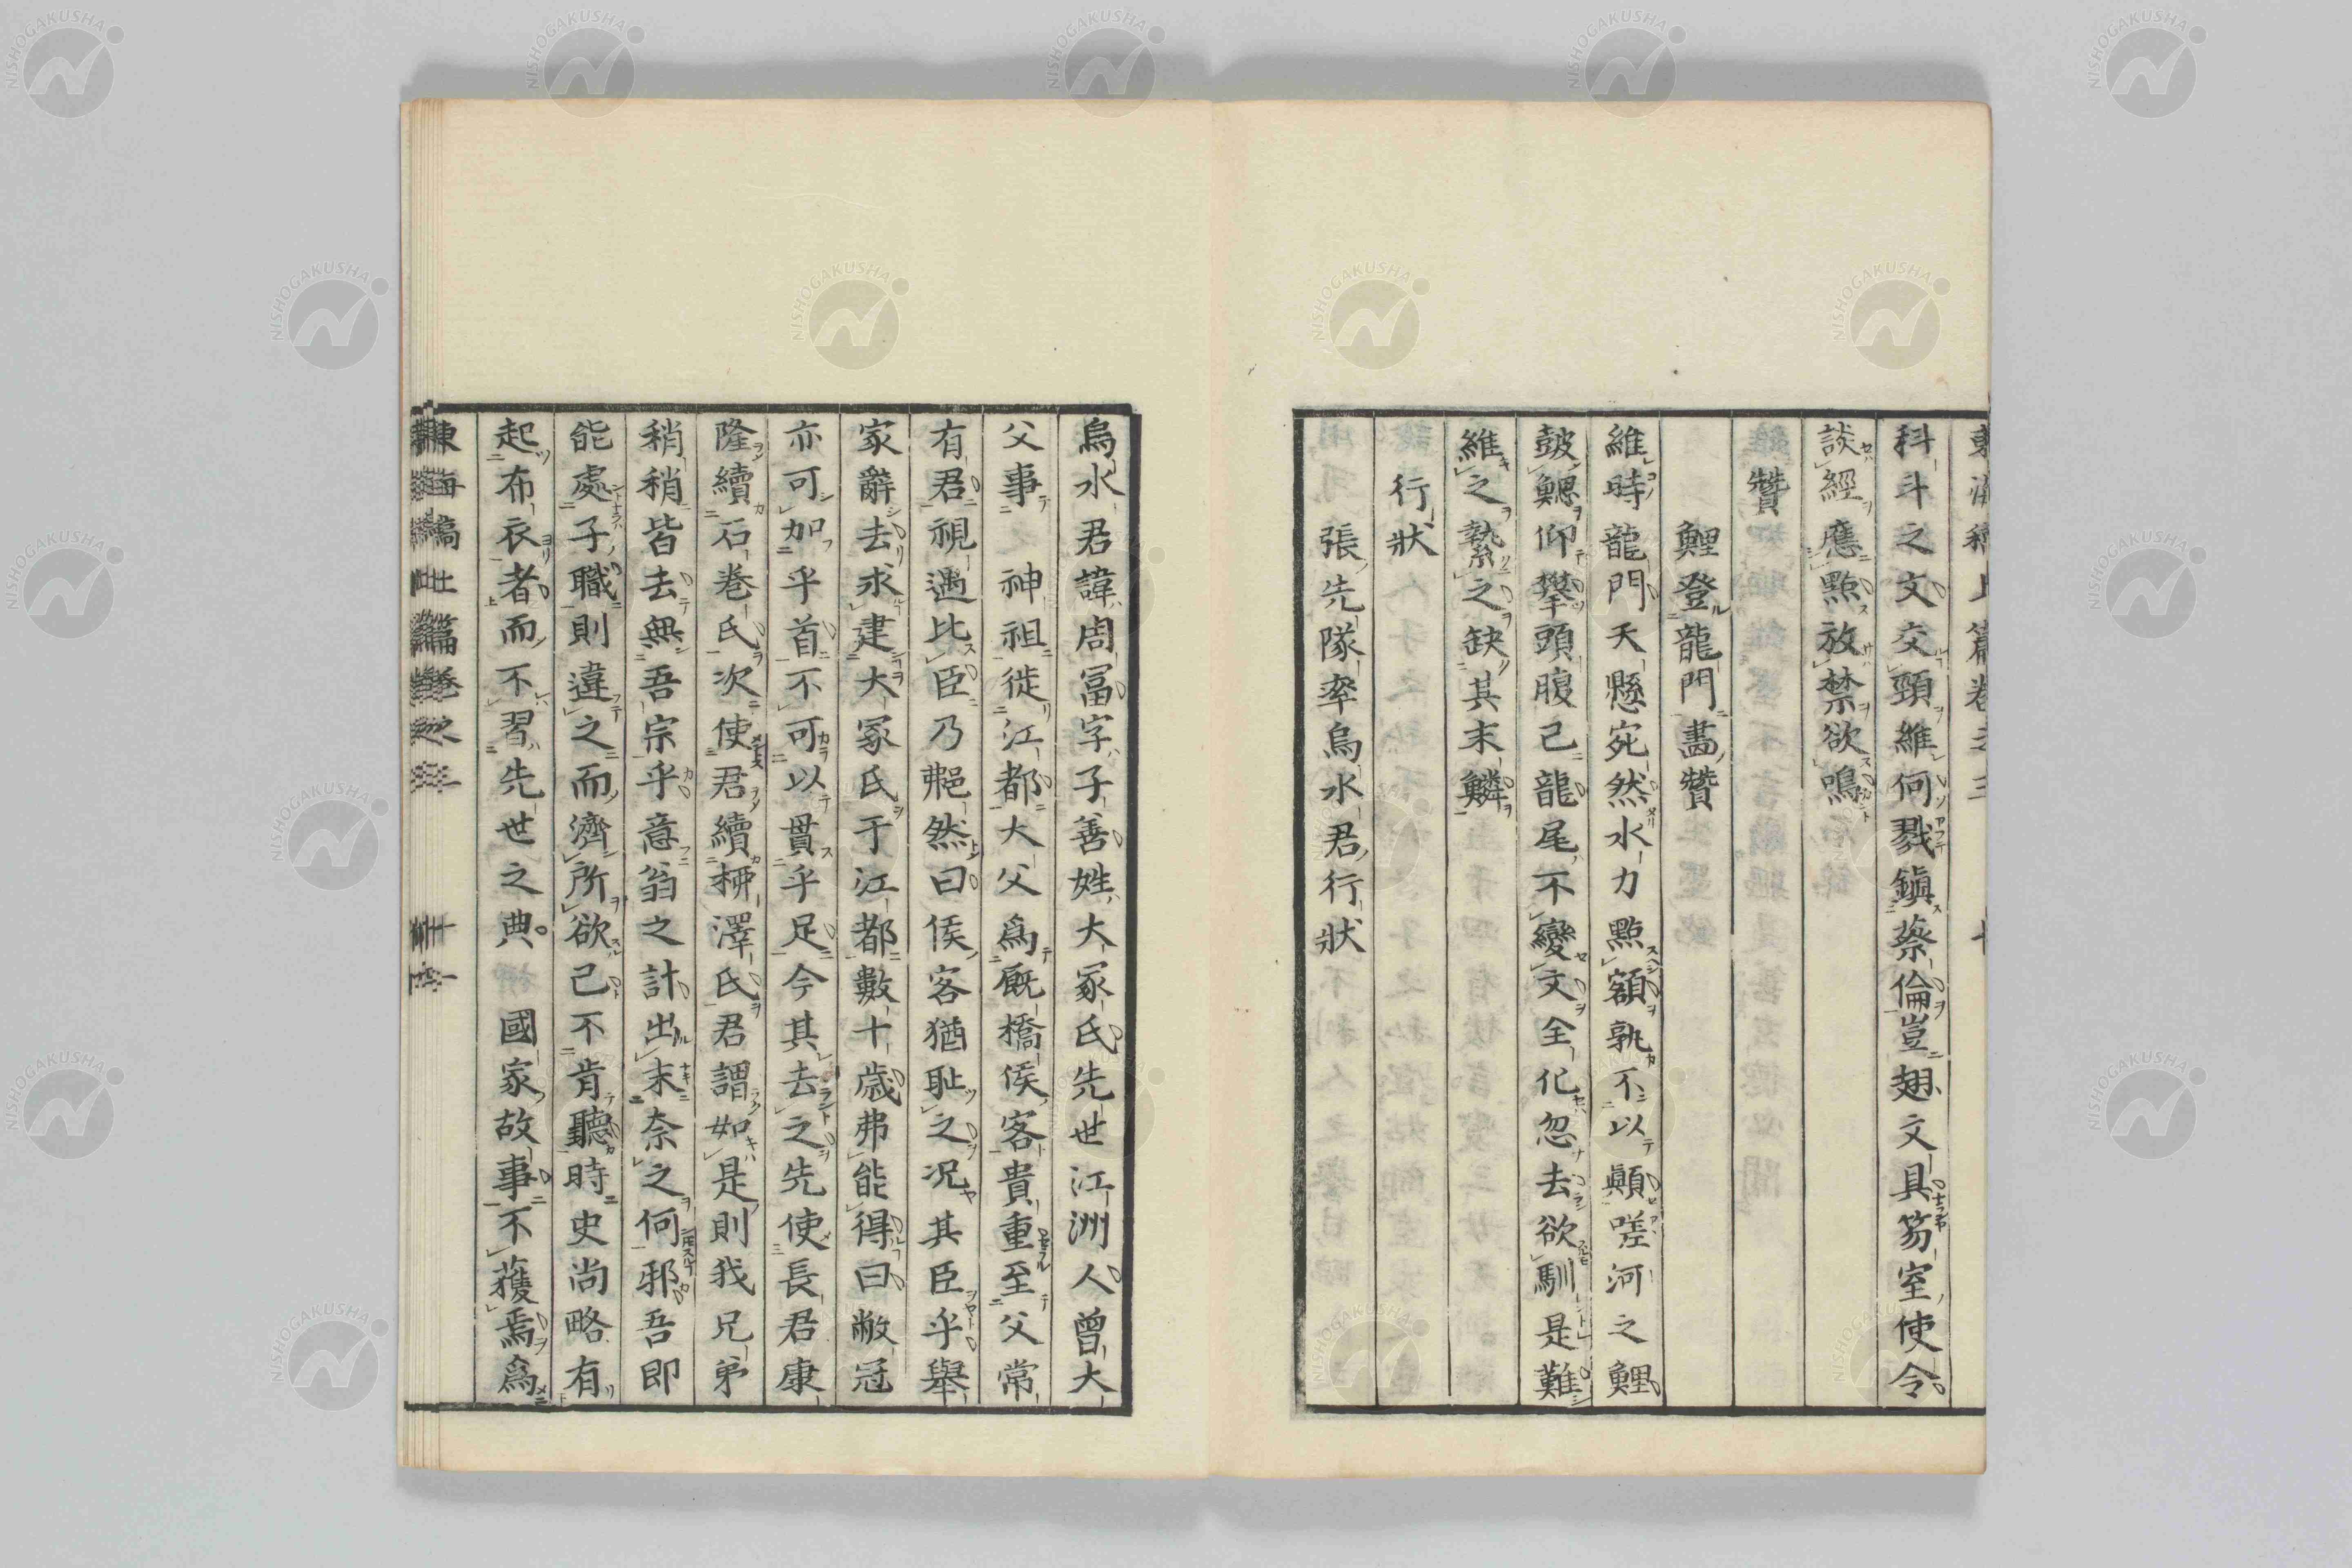 科斗之文交頸維何戮鎮蔡倫豈翅文具笏室使令
談經應點放禁欲鳴
贊
鯉登龍門畵贊
維時龍門天懸宛然水力點額孰不以顛嗟河之鯉
皷鰓仰攀頭腹已龍尾不變文全化忽去欲馴是難
維之縶之缺其末鱗
行狀
張先隊率烏水君行狀
烏水君諱周冨字子善姓大冢氏先世江洲人曾大
父事 神祖徙江都大父為厩橋侯客貴重至父常
有君視遇比臣乃艴然曰侯客猶耻之况其臣乎舉
家辭去求建大冢氏于江都數十歲弗能得曰敝冠
亦可加乎首不可以貫乎足今其去之先使長君康
隆續石巻氏次使君續栁澤氏君謂如是則我兄弟
稍稍皆去無吾宗乎意翁之計出末奈之何邪吾即
能處子職則違之而濟所欲己不肯聽時史尚略有
起布衣者而不習先世之典 國家故事不獲焉爲
NISHOGAKUSHA